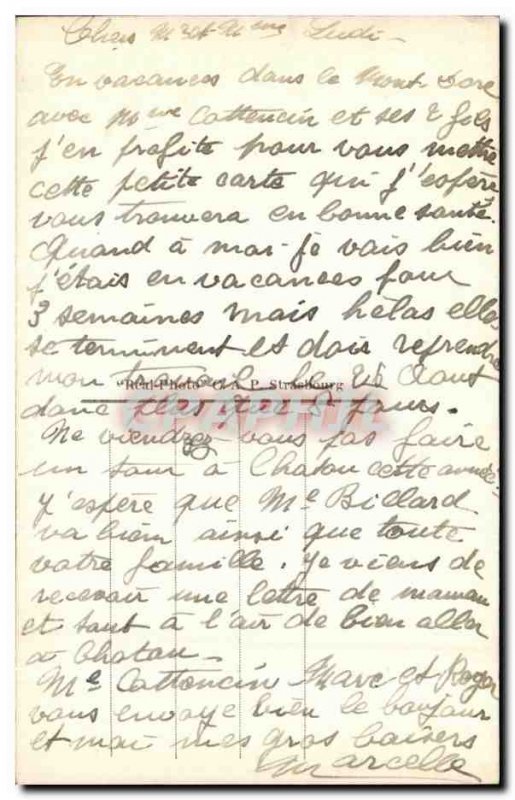 Chers Mr et Mme Ludi -
En vacances dans le Mont-Dore
avec Mme Cattencin et ses 2 fils
j'en profite pour vous mettre
cette petite carte qui j'espère
vous trouvera en bonne santé.
Quand à moi-je vais bien
j'étais en vacances pour
3 semaines mais hélas elles
se terminent et dois reprendre
mon travail le 25 Aout
"Real-Photo" C. A. P. Strasbourg
donc plus que 8 jours.
Ne viendrez-vous pas faire
un tour à Chatou cette année
j'espère que Me Billard
va bien ainsi que toute
votre famille. je viens de
recevoir une lettre de maman
et tout à l'air de bien aller
à Chatou -
Me Cattencin Marc et Roger
vous envoye bien le bonjour
et moi mes gros baisers
Marcelle